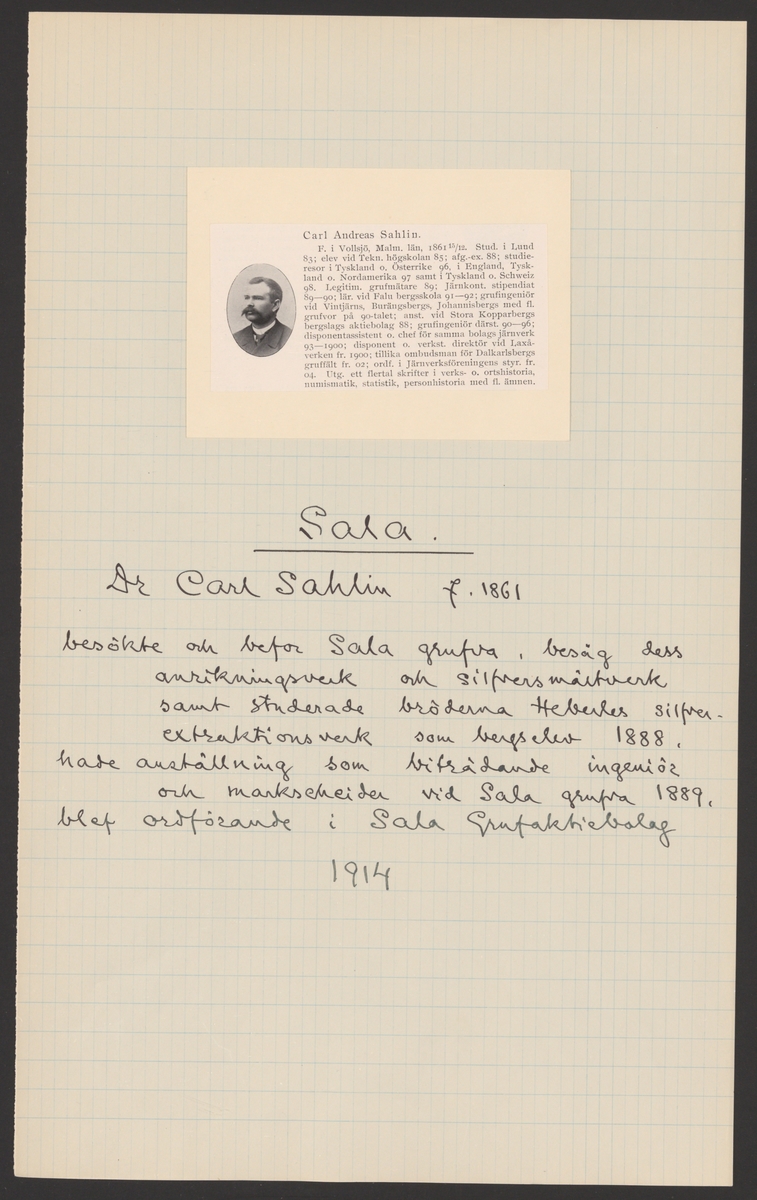 Carl Andreas Sahlin.
F. i Vollsjö, Malm. län, 1861 15/12. Stud. i Lund
83; elev vid Tekn. högskolan 85; afg.-ex. 88; studie-
resor i Tyskland o. Österrike 96, i England, Tysk-
land o. Nordamerika 97 samt i Tyskland o. Schweiz
98. Legitim. grufmätare 89; Järnkont. stipendiat
89—90; lär. vid Falu bergsskola 91—92; grufingeniör
vid Vintjärns, Burängsbergs, Johannisbergs med fl.
grufvor på 90-talet; anst. vid Stora Kopparbergs
bergslags aktiebolag 88; grufingeniör därst. 90—96;
disponentassistent o. chef för samma bolags järnverk
93—1900; disponent o. verkst. direktör vid Laxå-
verken fr. 1900; tillika ombudsman för Dalkarlsbergs
gruffält fr. 02; ordf. i Järnverksföreningens styr. fr.
04. Utg. ett flertal skrifter i verks- o. ortshistoria,
numismatik, statistik, personhistoria med fl. ämnen.
Sala.
Dr Carl Sahlin f. 1861
besökte och befor Sala grufva, besåg dess
anrikningsverk och silfversmältverk
samt studerade bröderna Heberles silfver-
extraktionsverk som bergselev 1888,
hade anställning som biträdande ingeniör
och markscheider vid Sala grufva 1889,
blef ordförande i Sala Grufaktiebolag
1914